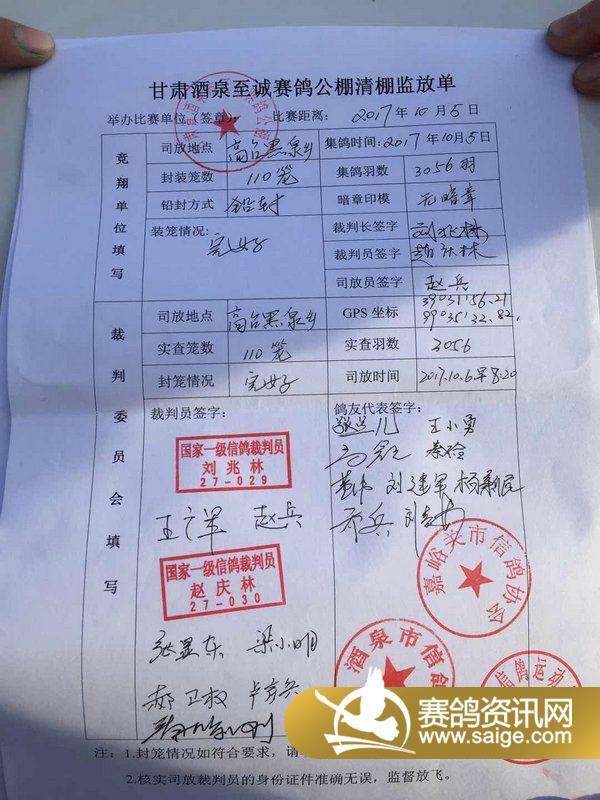 甘肃酒泉至诚赛鸽公棚清棚监放单
举办比赛单位（签章）： 比赛距离： 2017年10月5日
竞翔单位填写
司放地点 高台黑泉乡 集鸽时间：2017年10月5日
封装笼数 110笼 集鸽羽数 3056羽
铅封方式 铅封 暗章印模 无暗章
装笼情况： 完好 裁判长签字 刘兆林
裁判员签字
司放员签字 赵兵
裁判委员会填写
司放地点 高台黑泉乡 GPS 坐标 39031'56.21 99035'32.82
实查笼数 110笼 实查羽数 3056
封笼情况 完好 司放时间 2017.10.6.早8:20
裁判员签字： 鸽友代表签字：
王小勇
国家一级信鸽裁判员
刘兆林
27-029
刘建军
赵兵
国家一级信鸽裁判员
赵庆林
27-030
嘉峪关市信鸽协会
梁小明
酒泉市信鸽
鸽运动
注：1.封笼情况如符合要求，请
2.核实司放裁判员的身份证件准确无误，监督放飞。
赛鸽资讯网
www.saige.com